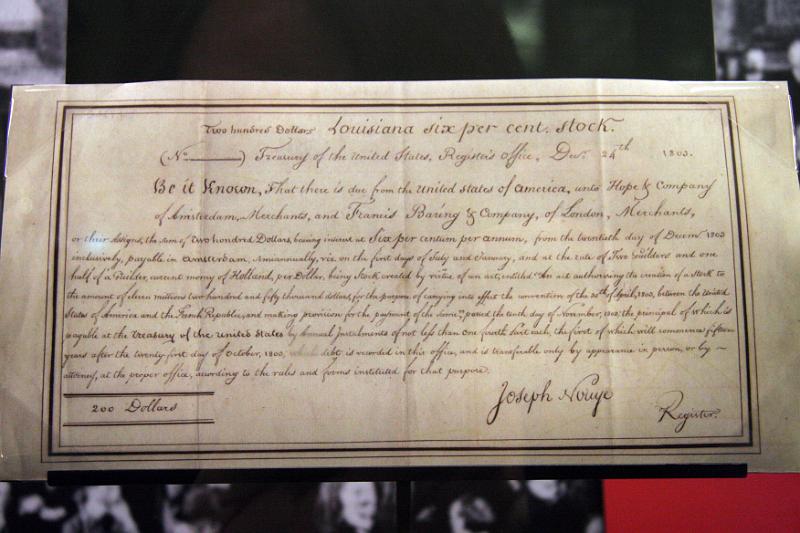 Two hundred Dollars Louisiana six per cent. Stock.
(No. ) Treasury of the United States, Register's Office, Decr. 24th 1803.
Be it Known, That there is due from the United States of America, unto Hope & Company
of Amsterdam, Merchants, and Francis Baring & Company, of London, Merchants,
or their Assigns, the sum of Two hundred Dollars, bearing interest at Six per centum per annum, from the twentieth day of Decemr. 1803
inclusively, payable in Amsterdam, Semiannually, viz. on the first days of July and January, and at the rate of Two Guilders and one
half of a Guilder, current money of Holland, per Dollar, being Stock created by virtue of an act, entitled "An act authorising the creation of a Stock to
the amount of eleven millions two hundred and fifty thousand dollars, for the purpose of carrying into effect the convention of the 30th of April, 1803, between the United
States of America and the French Republic, and making provision for the payment of the same," passed the tenth day of November, 1803; the principal of which is
payable at the Treasury of the United States by Annual Instalments of not less than one fourth part each, the first of which will commence fifteen
years after the twenty-first day of October, 1803, which debt is recorded in this office, and is transferable only by appearance in person, or by
attorney, at the proper office, according to the rules and forms instituted for that purpose.
200 Dollars
Joseph Nourse
Register.